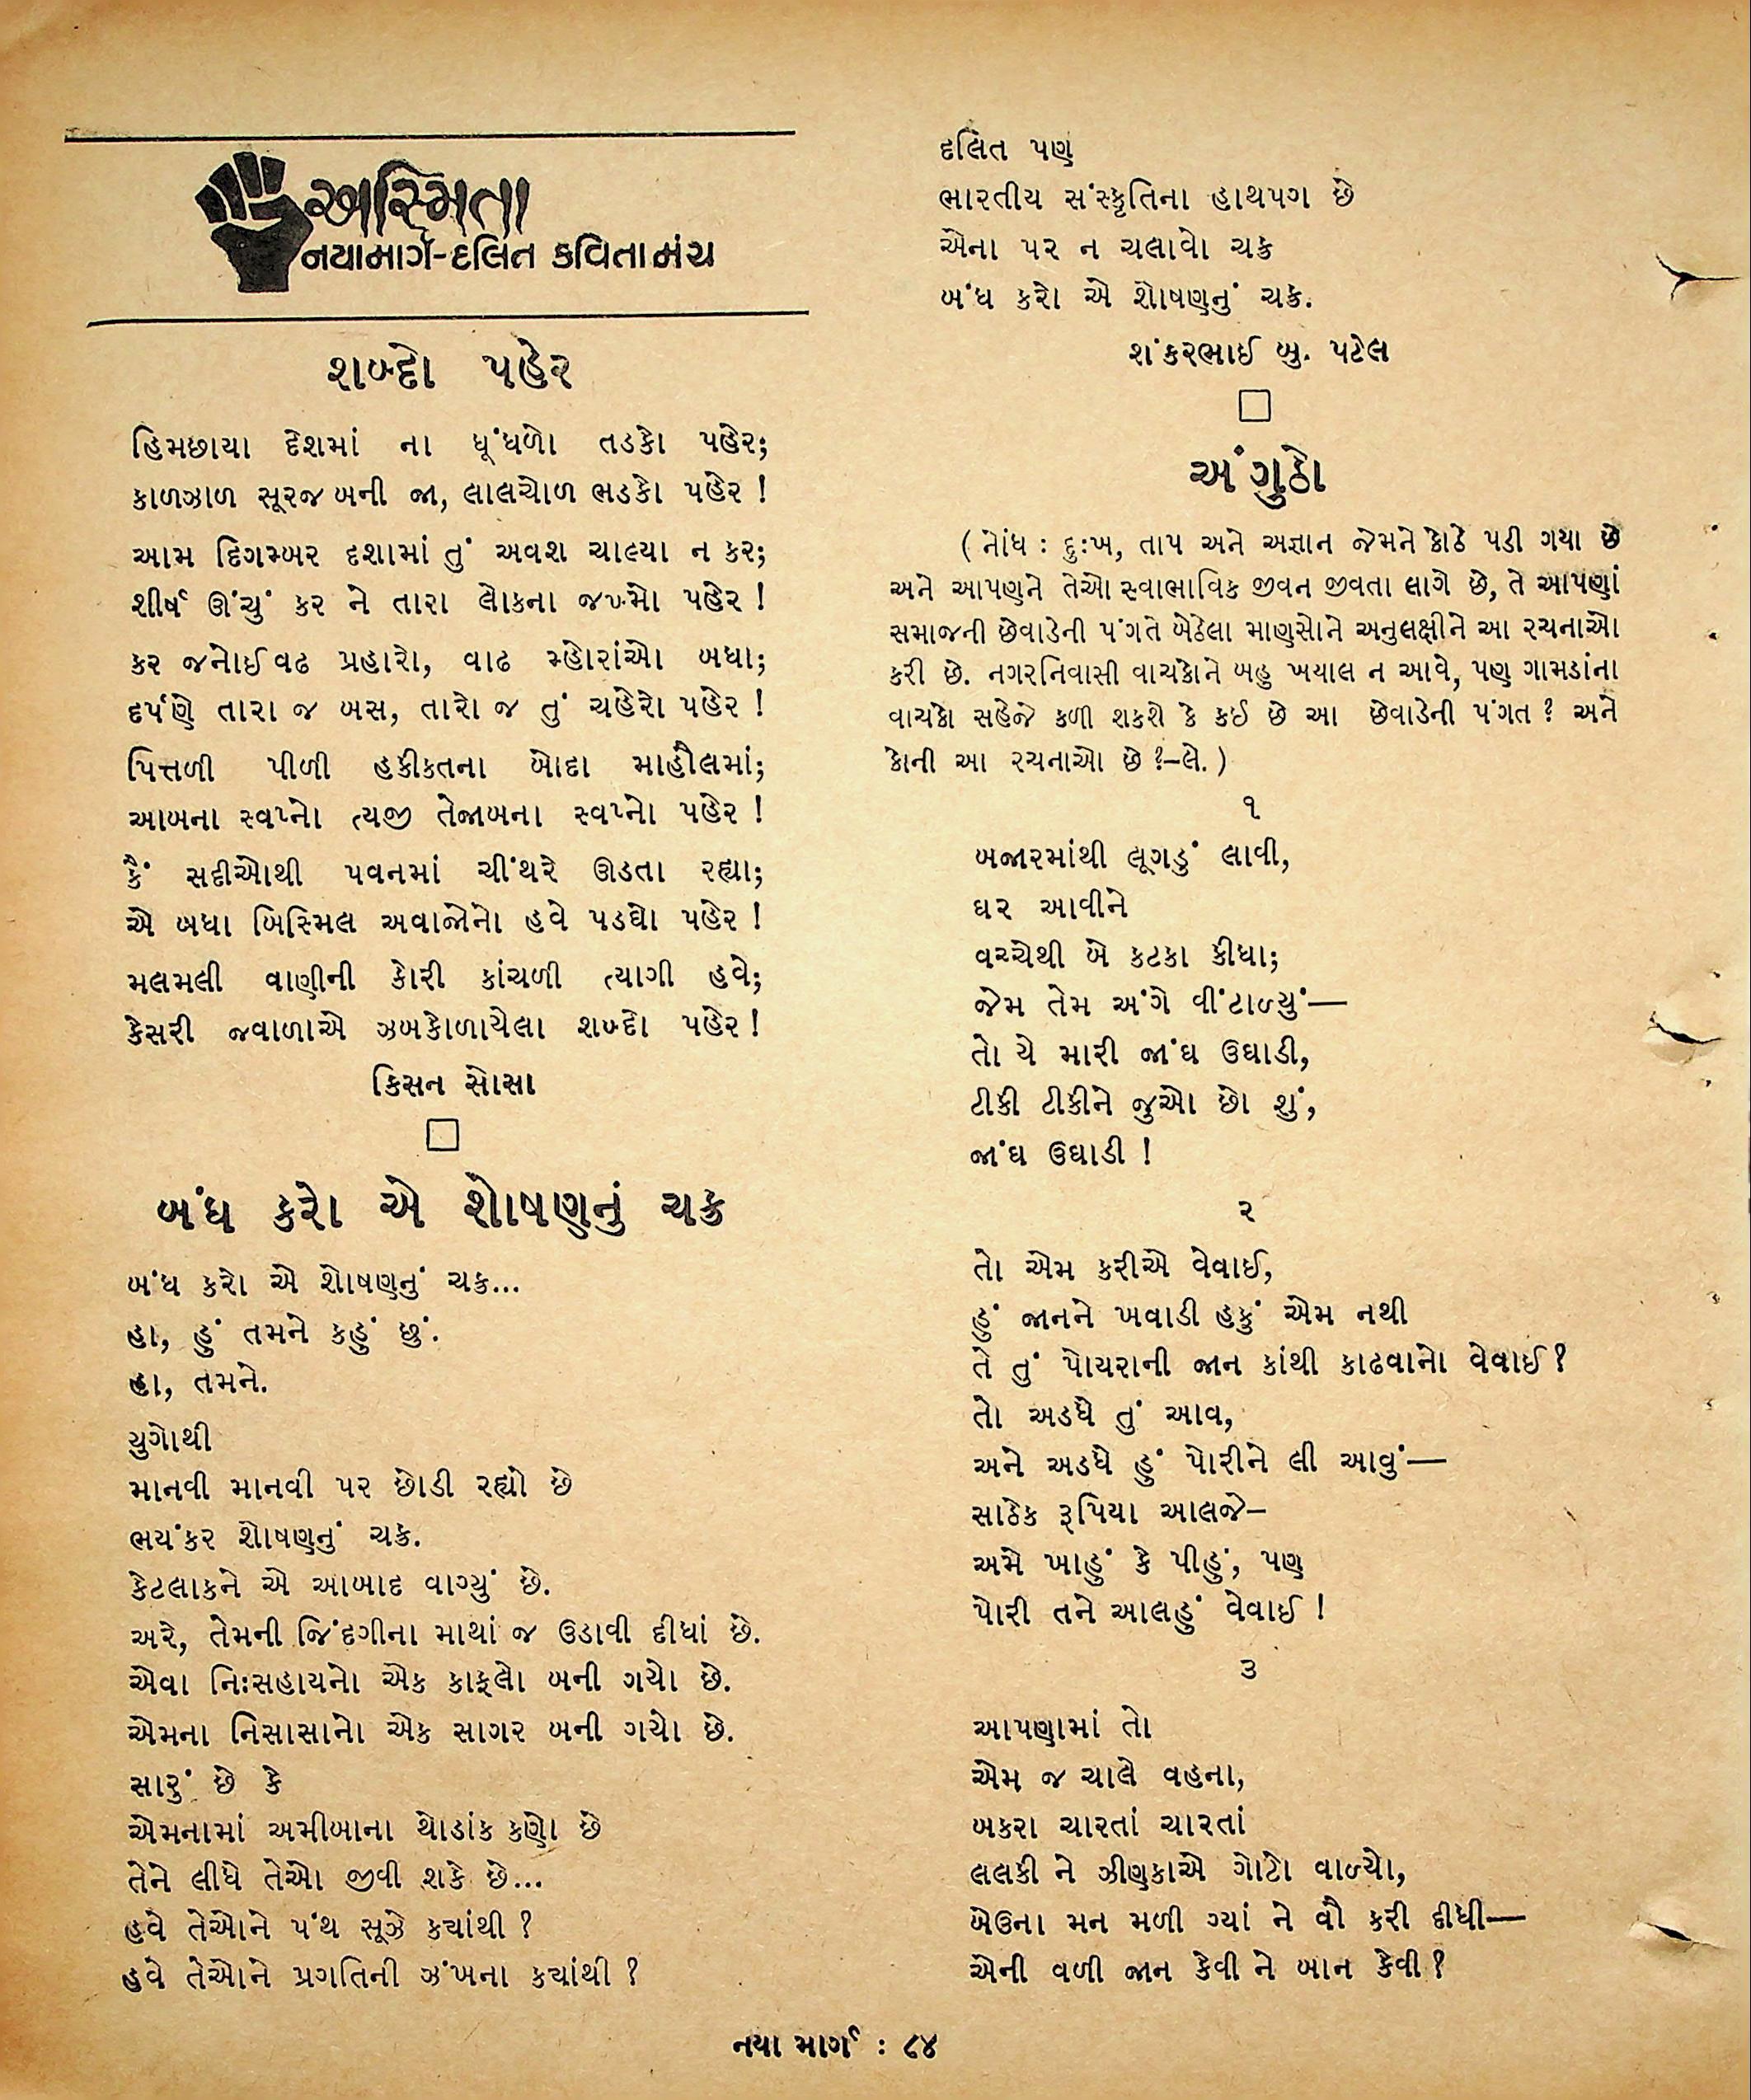 અસ્મિતા
નયામાર્ગ-દલિત કવિતામંચ
શબ્દો પહેર
હિમછાયા દેશમાં ના ધૂંધળો તડકો પહેર;
કાળઝાળ સૂરજ બની જા, લાલચોળ ભડકો પહેર !
આમ દિગમ્બર દશામાં તું અવશ ચાલ્યા ન કર;
શીર્ષ ઊંચું કર ને તારા લોકના જખ્મો પહેર !
કર જનોઈવઢ પ્રહારો, વાઢ મ્હોરાંઓ બધા;
દર્પણે તારા જ બસ, તારો જ તું ચહેરો પહેર !
પિત્તળી પીળી હકીકતના બોદા માહૌલમાં;
આબના સ્વપ્નો ત્યજી તેજાબના સ્વપ્નો પહેર !
કૈં સદીઓથી પવનમાં ચીંથરે ઊડતા રહ્યા;
એ બધા બિસ્મિલ અવાજોનો હવે પડઘો પહેર !
મલમલી વાણીની કોરી કાંચળી ત્યાગી હવે;
કેસરી જ્વાળાએ ઝબકોળાયેલા શબ્દો પહેર !
કિસન સોસા
બંધ કરો એ શોષણનું ચક્ર
બંધ કરો એ શોષણનું ચક્ર...
હા, હું તમને કહું છું.
હા, તમને.
યુગોથી
માનવી માનવી પર છોડી રહ્યો છે
ભયંકર શોષણનું ચક્ર.
કેટલાકને એ આબાદ વાગ્યું છે.
અરે, તેમની જિંદગીના માથાં જ ઉડાવી દીધાં છે.
એવા નિઃસહાયનો એક કાફલો બની ગયો છે.
એમના નિસાસાનો એક સાગર બની ગયો છે.
સારું છે કે
એમનામાં અમીબાના થોડાંક કણો છે
તેને લીધે તેઓ જીવી શકે છે...
હવે તેઓને પંથ સૂઝે ક્યાંથી ?
હવે તેઓને પ્રગતિની ઝંખના ક્યાંથી ?
દલિત પણ
ભારતીય સંસ્કૃતિના હાથપગ છે
એના પર ન ચલાવો ચક્ર
બંધ કરો એ શોષણનું ચક્ર.
શંકરભાઈ બુ. પટેલ
અંગુઠો
( નોંધ : દુઃખ, તાપ અને અજ્ઞાન જેમને કોઠે પડી ગયા છે
અને આપણને તેઓ સ્વાભાવિક જીવન જીવતા લાગે છે, તે આપણાં
સમાજની છેવાડેની પંગતે બેઠેલા માણસોને અનુલક્ષીને આ રચનાઓ
કરી છે. નગરનિવાસી વાચકોને બહુ ખયાલ ન આવે, પણ ગામડાંના
વાચકો સહેજે કળી શકશે કે કઈ છે આ છેવાડેની પંગત ? અને
કોની આ રચનાઓ છે ?–લે. )
૧
બજારમાંથી લૂગડું લાવી,
ઘર આવીને
વચ્ચેથી બે કટકા કીધા;
જેમ તેમ અંગે વીંટાળ્યું—
તો યે મારી જાંઘ ઉઘાડી,
ટીકી ટીકીને જુઓ છો શું,
જાંઘ ઉઘાડી !
૨
તો એમ કરીએ વેવાઈ,
હું જાનને ખવાડી હકું એમ નથી
તે તું પોયરાની જાન કાંથી કાઢવાનો વેવાઈ ?
તો અડધે તું આવ,
અને અડધે હું પોરીને લી આવું—
સાઠેક રૂપિયા આલજે–
અમે ખાહું કે પીહું, પણ
પોરી તને આલહું વેવાઈ !
૩
આપણામાં તો
એમ જ ચાલે વહના,
બકરા ચારતાં ચારતાં
લલકી ને ઝીણકાએ ગોટો વાળ્યો,
બેઉના મન મળી ગ્યાં ને વૌ કરી દીધી—
એની વળી જાન કેવી ને બાન કેવી ?
નયા માર્ગ : ૮૪